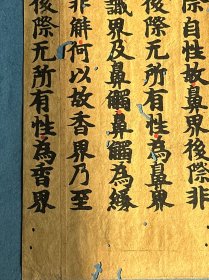 際自性故鼻界後際非
後際无所有性為鼻界
識界及鼻觸鼻觸為緣
非解何以故香界乃至
後際无所有性為香界